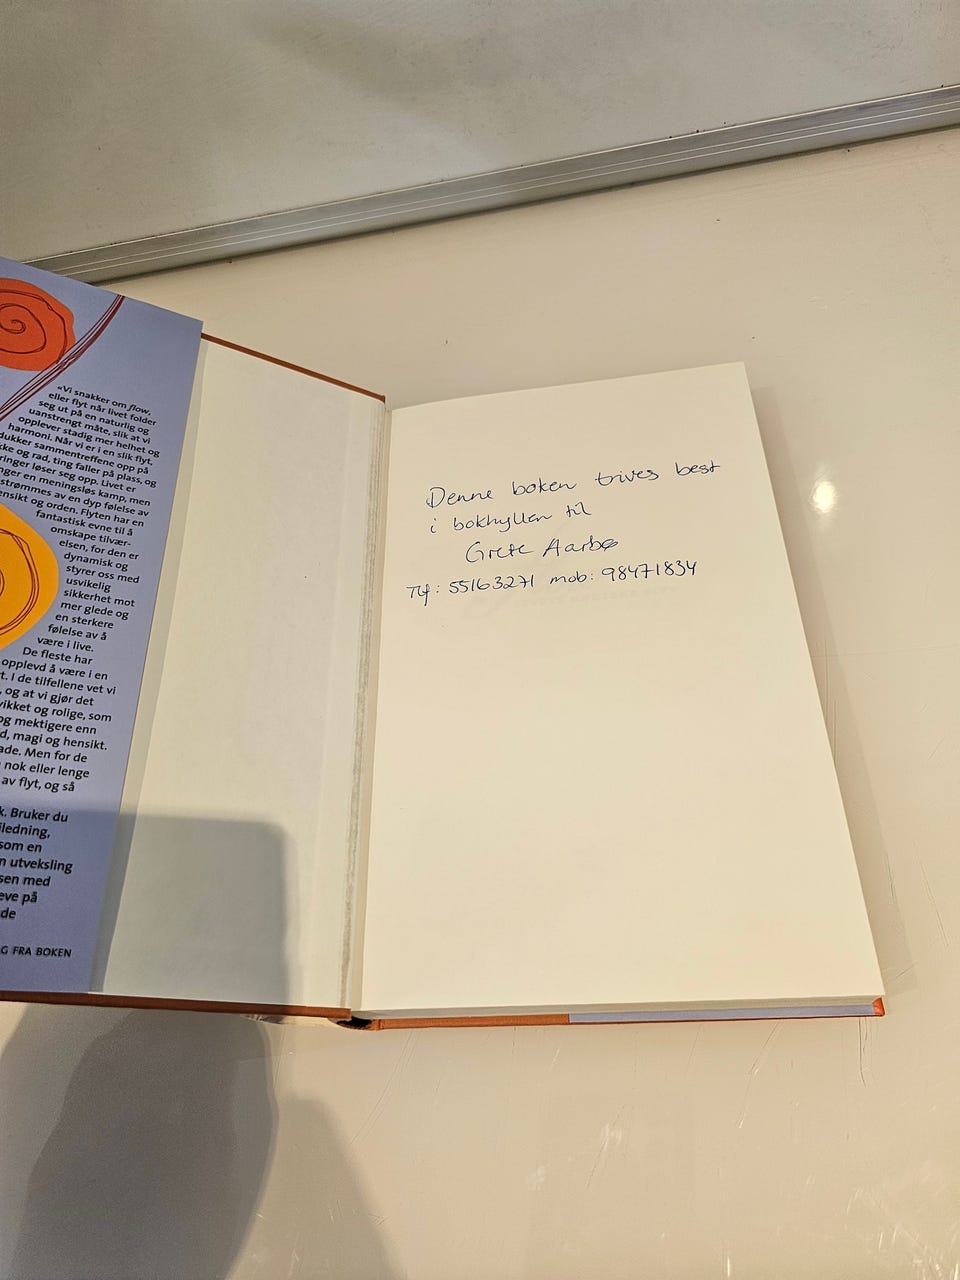 «Vi snakker om flow,
eller flyt når livet folder
seg ut på en naturlig og
uanstrengt måte, slik at vi
opplever stadig mer helhet og
harmoni. Når vi er i en slik flyt,
dukker sammentreffene opp på
og rad, ting faller på plass, og
løser seg opp. Livet er
en meningsløs kamp, men
av en dyp følelse av
og orden. Flyten har en
fantastisk evne til å
omskape tilvær-
elsen, for den er
dynamisk og
styrer oss med
usvikelig
sikkerhet mot
mer glede og
en sterkere
følelse av å
være i live.
De fleste har
opplevd å være i en
I de tilfellene vet vi
, og at vi gjør det
og rolige, som
og mektigere enn
magi og hensikt.
Men for de
nok eller lenge
av flyt, og så
Bruker du
som en
utveksling
med
på
de
FRA BOKEN
Denne boken trives best
i bokhyllen til
Grete Aarbø
Tlf: 55163271 mob: 98471834